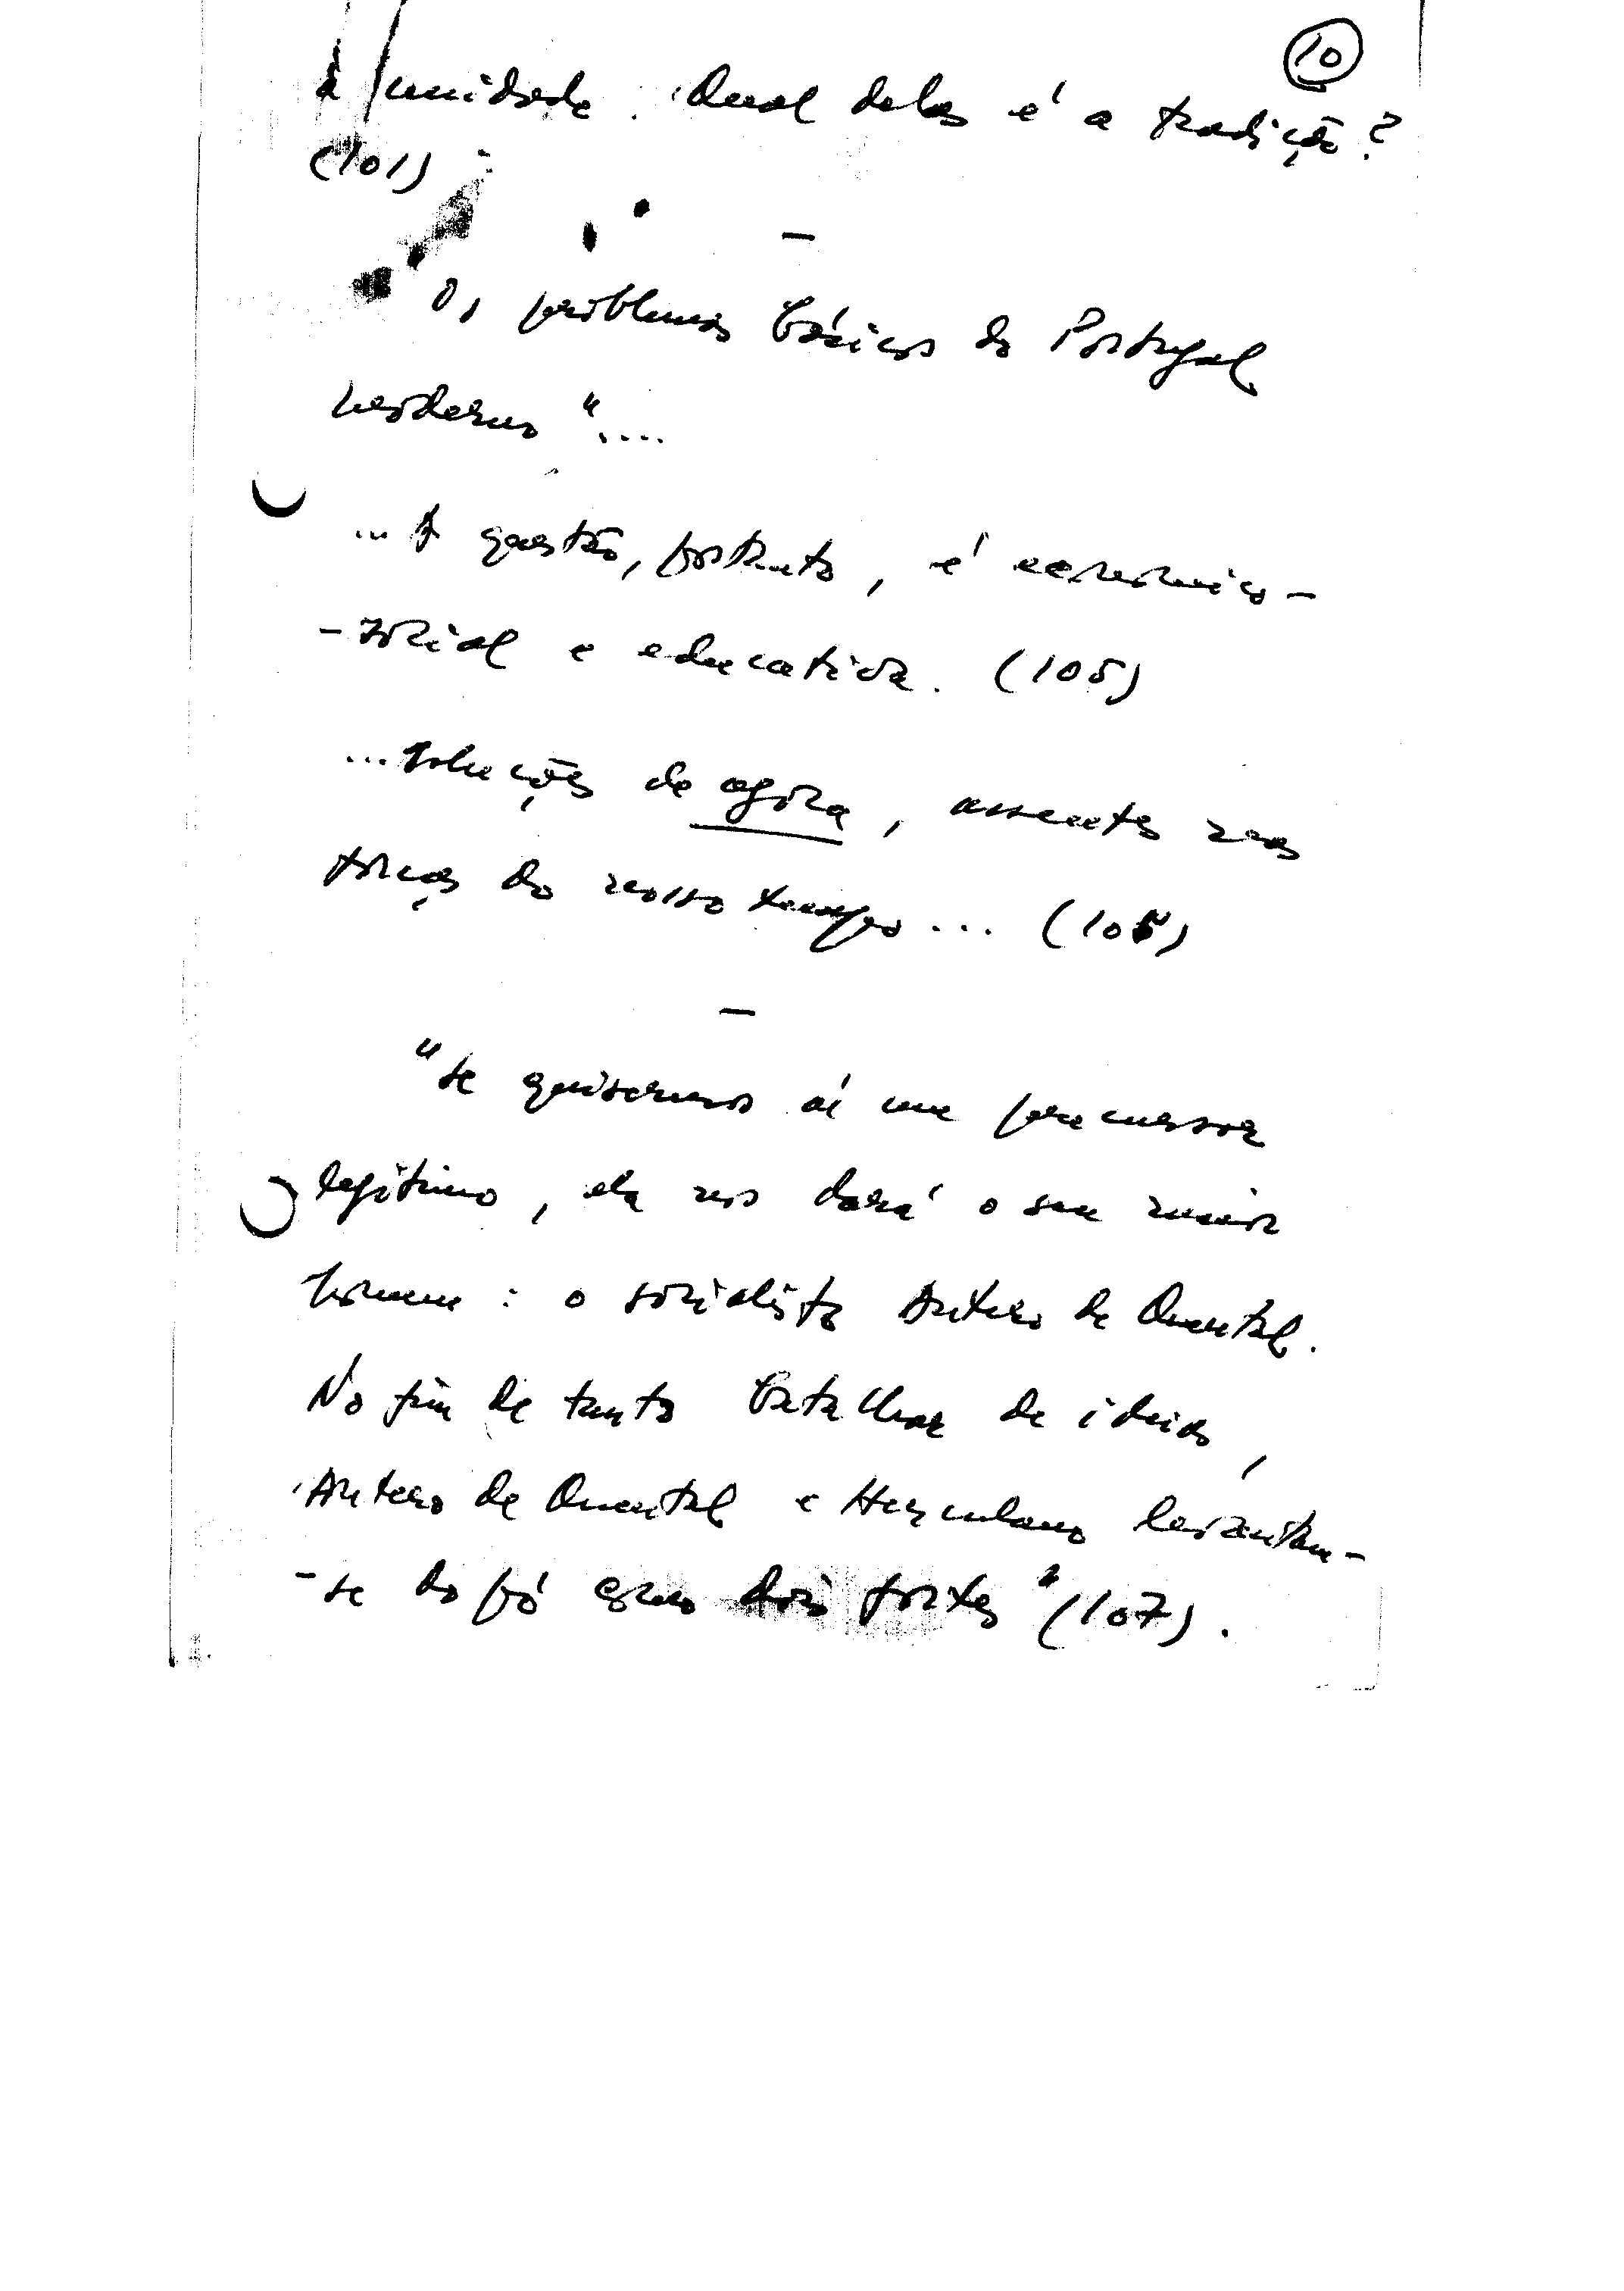 10
à unidade. Qual delas é a tradição?
(101)
—
Os problemas básicos do Portugal
moderno"....
... A questão, portanto, é económico-
-social e educativa. (105)
... soluções de agora, assentes nas
forças do nosso tempo... (105)
—
"Se quisermos aí um precursor
legítimo, ela nos dará o seu maior
homem: o socialista Antero de Quental.
No fim de tanto batalhar de ideias,
Antero de Quental e Herculano levantam-
-se do pó como dois fortes" (107).